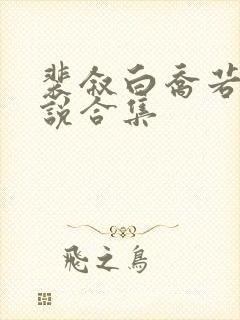 裴叙白喬若
說合集
飛之鳥